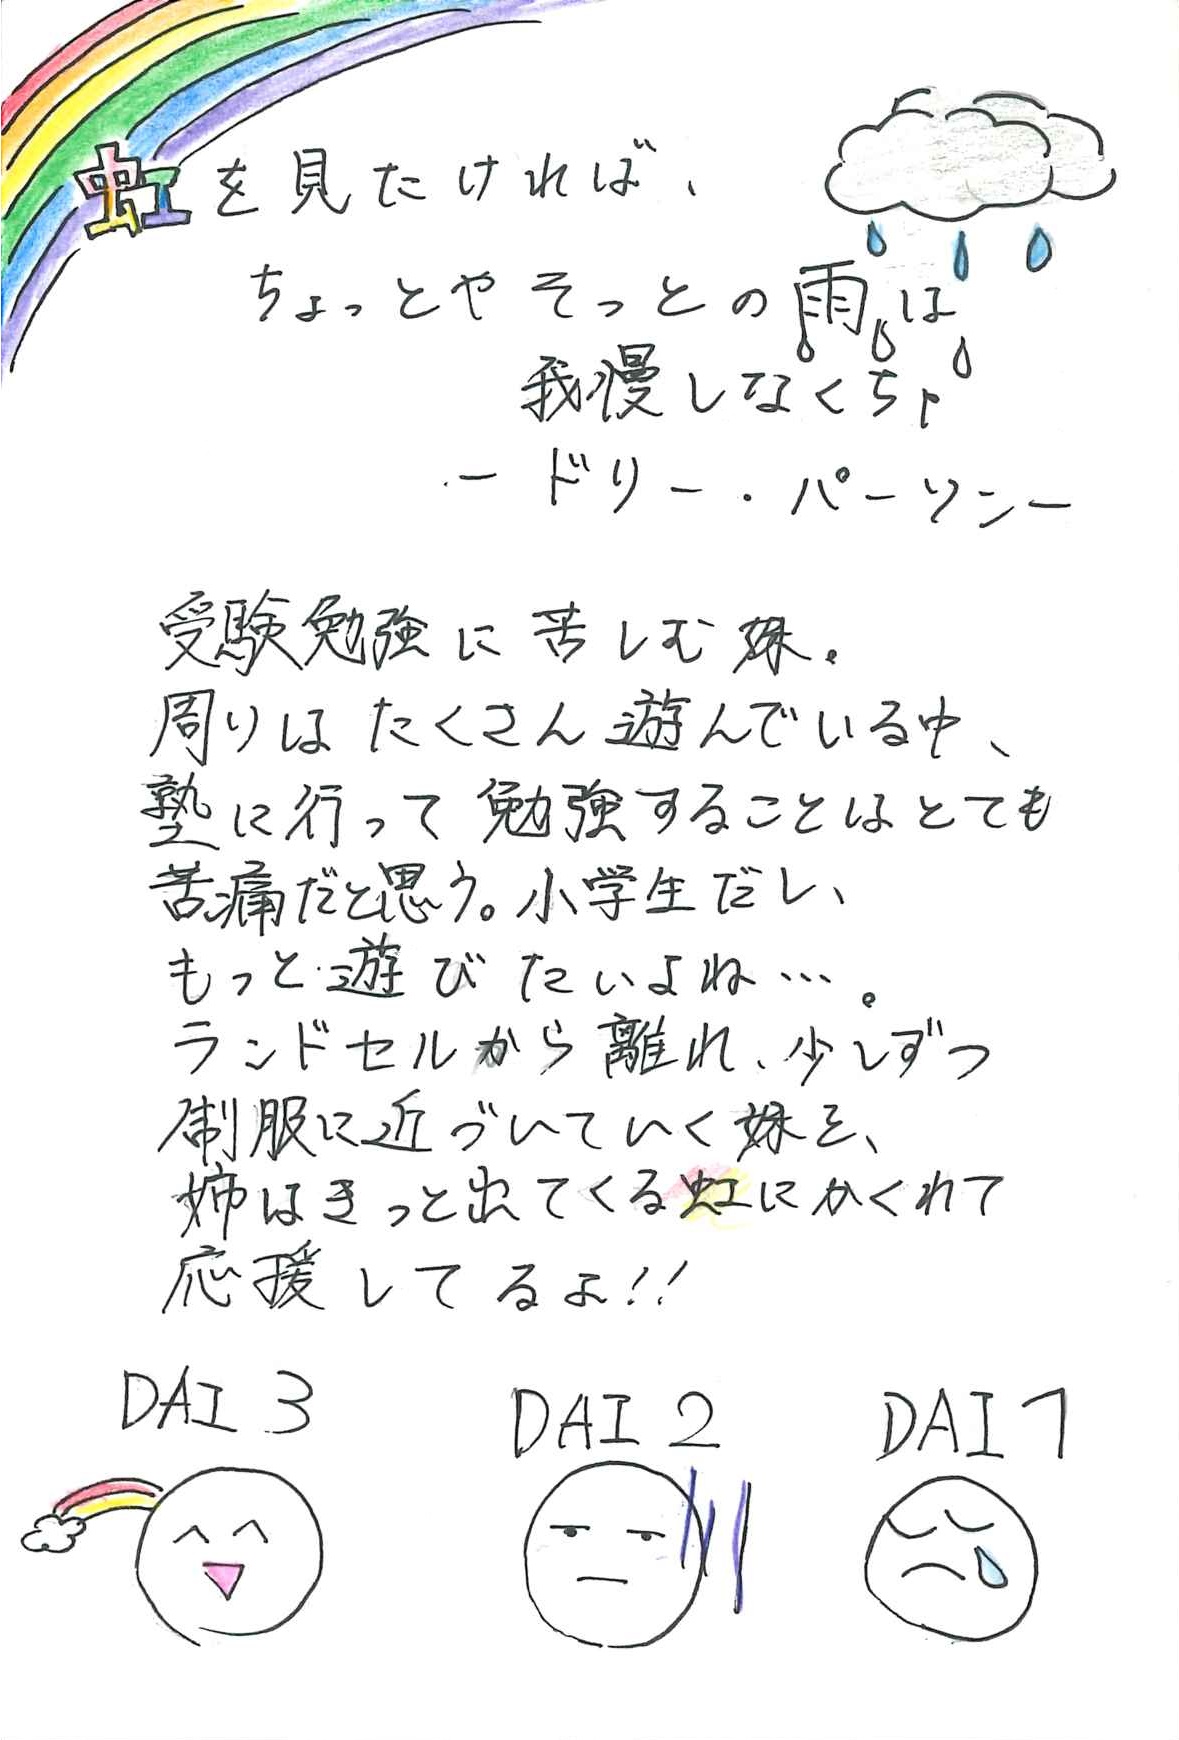 虹を見たければ、
ちょっとやそっとの雨は
我慢しなくちゃ
ー ドリー・パーソンー
受験勉強に苦しむ妹。
周りはたくさん遊んでいる中、
塾に行って勉強することはとても
苦痛だと思う。小学生だし、
もっと遊びたいよね…。
ランドセルから離れ、少しずつ
制服に近づいていく妹を、
姉はきっと出てくる虹にかくれて
応援してるよ!!
DAI 3 DAI 2 DAI 1